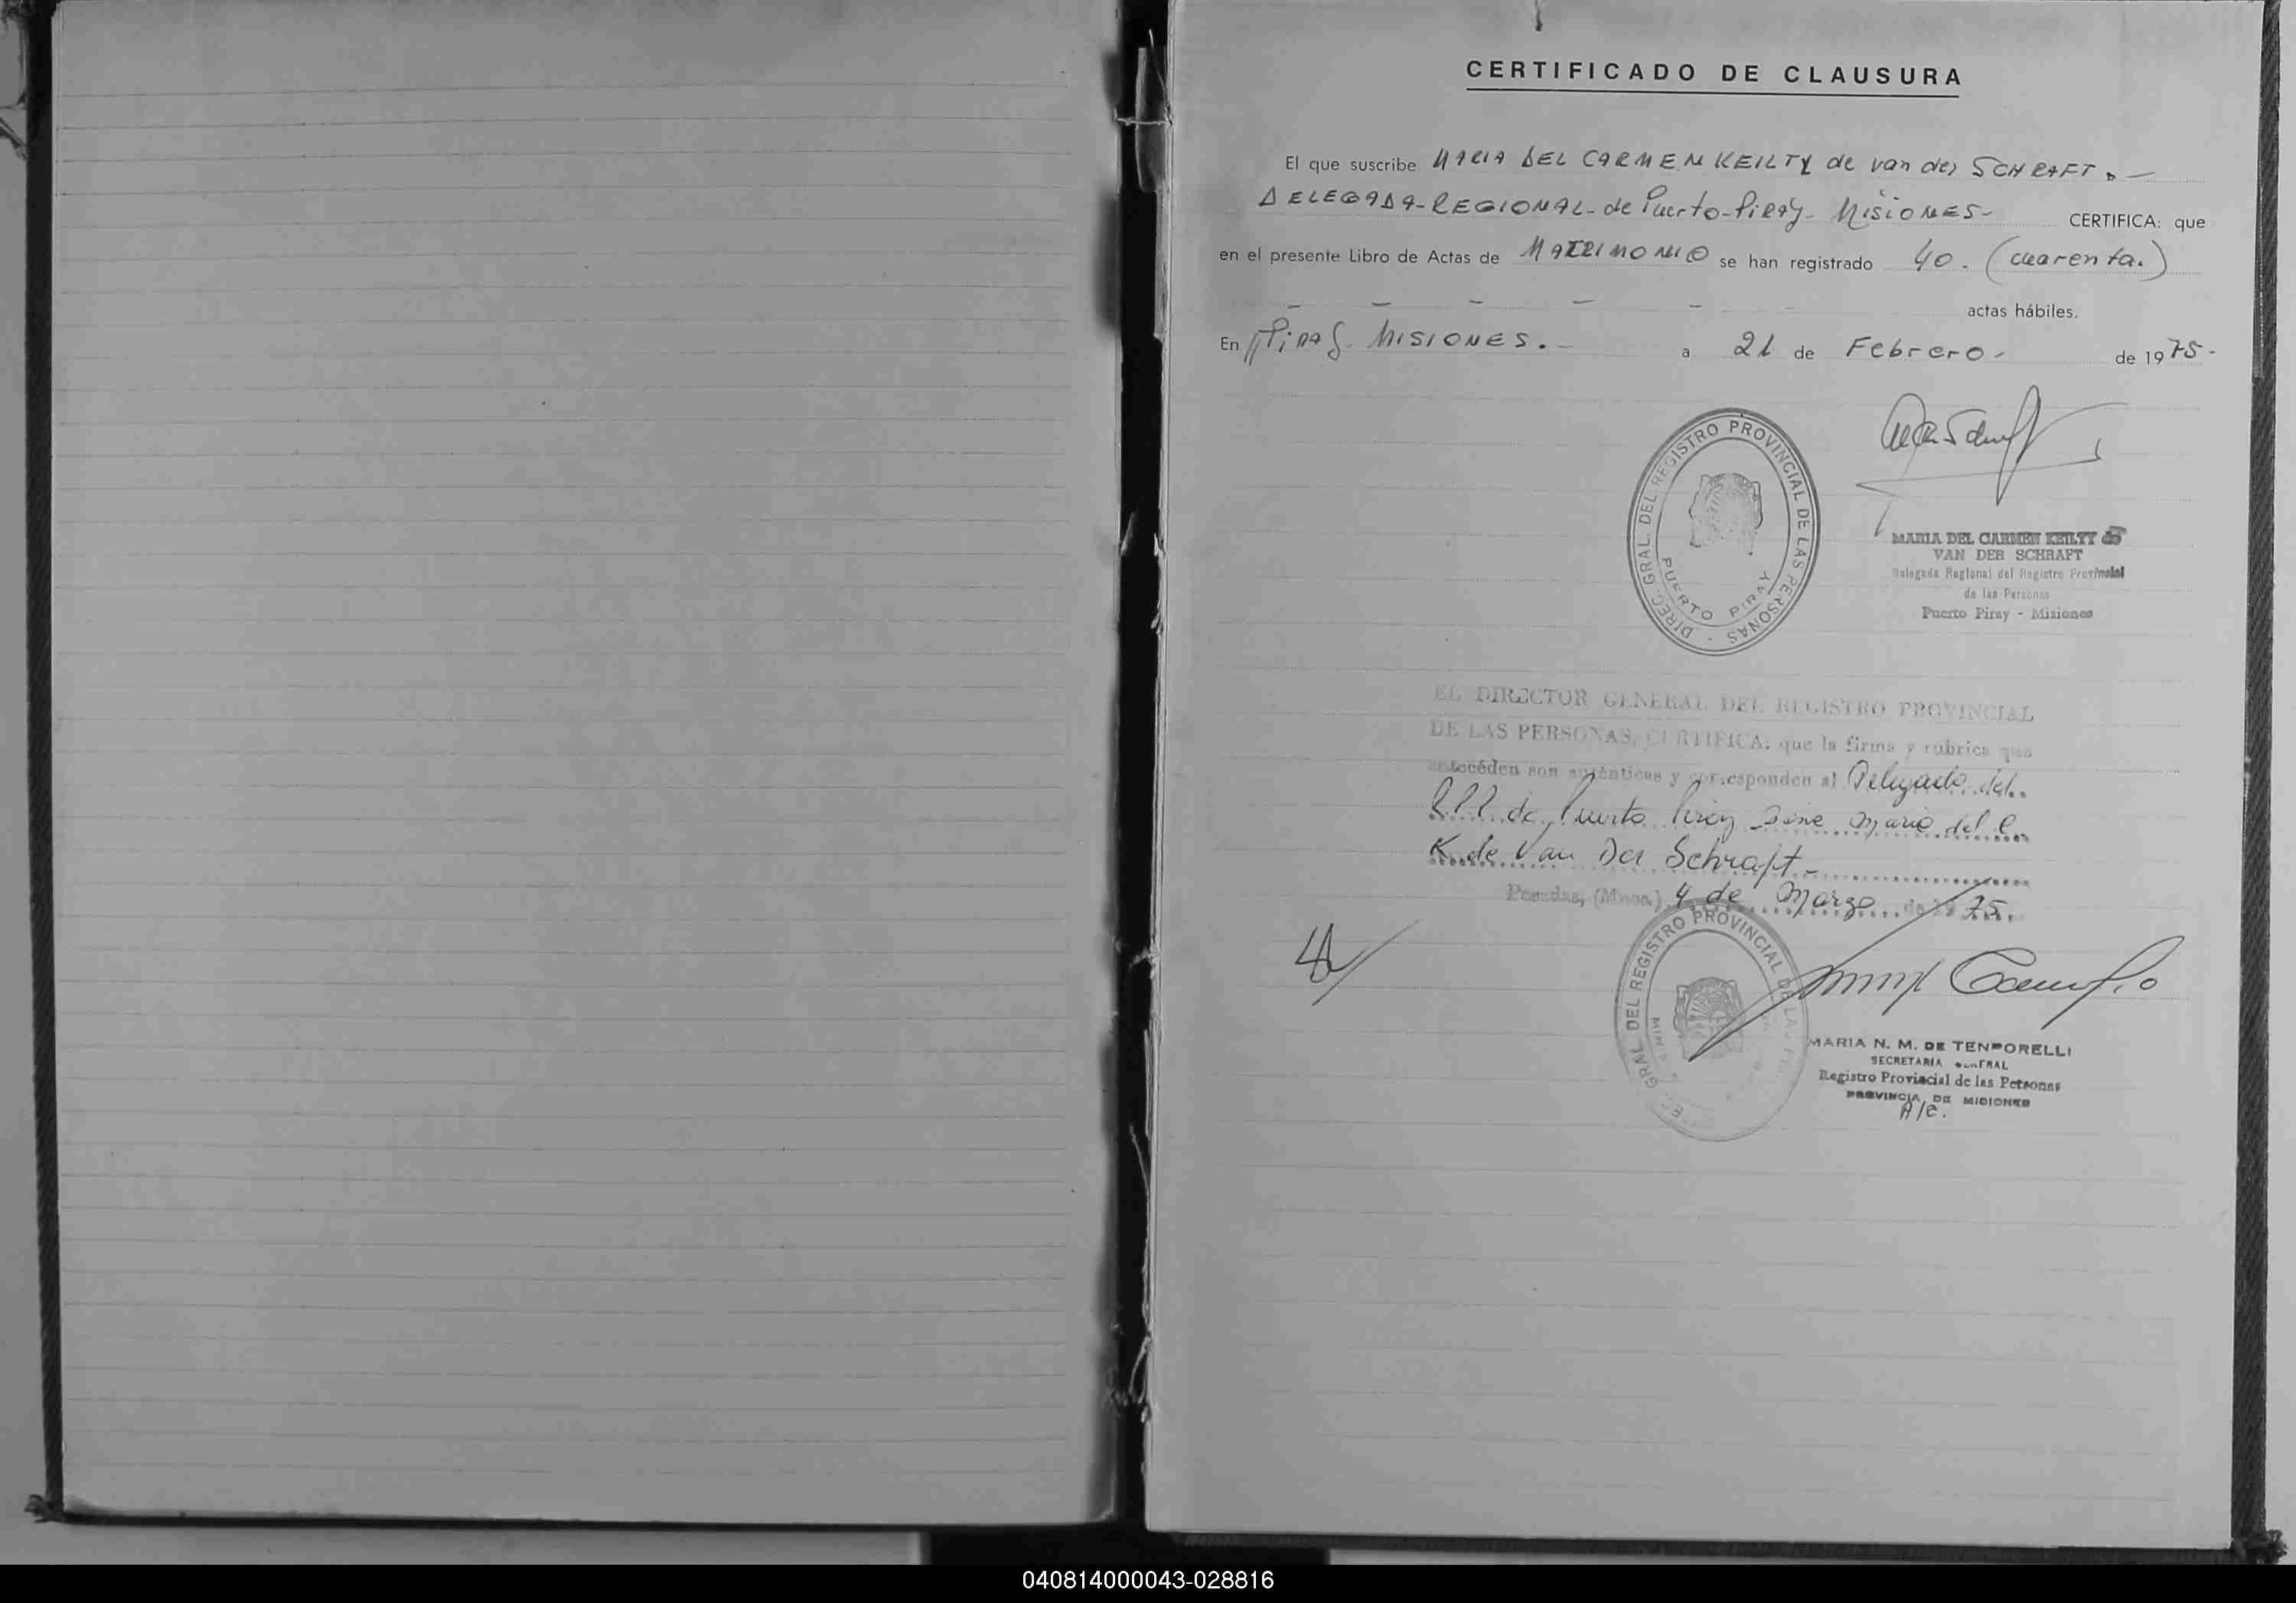 CERTIFICADO DE CLAUSURA
El que suscribe MARIA DEL CARMEN KEILTY de van der SCHRAFT.-
DELEGADA-REGIONAL-de Puerto-Piray- MISIONES- CERTIFICA: que
en el presente Libro de Actas de MATRIMONIO se han registrado 40.- (cuarenta.)
— — — — — actas hábiles.
En Piray- MISIONES.- a 21 de Febrero- de 1975-
DIREC. GRAL. DEL REGISTRO PROVINCIAL DE LAS PERSONAS -
PUERTO PIRAY
MARIA DEL CARMEN KEILTY de
VAN DER SCHRAFT
Delegada Regional del Registro Provincial
de las Personas
Puerto Piray - Misiones
EL DIRECTOR GENERAL DEL REGISTRO PROVINCIAL
DE LAS PERSONAS, CERTIFICA: que la firma y rúbrica que
anteceden son auténticas y corresponden al Delegado del
R.P.P. de Puerto Piray Maria del C.
K. de Van Der Schraft-
Posadas, (Mnes.) 4 de Marzo de 1975.
GRAL DEL REGISTRO PROVINCIAL DE LAS
MARIA N. M. DE TEMPORELLI
SECRETARIA GENERAL
Registro Provincial de las Personas
PROVINCIA DE MISIONES
A/C.
040814000043-028816